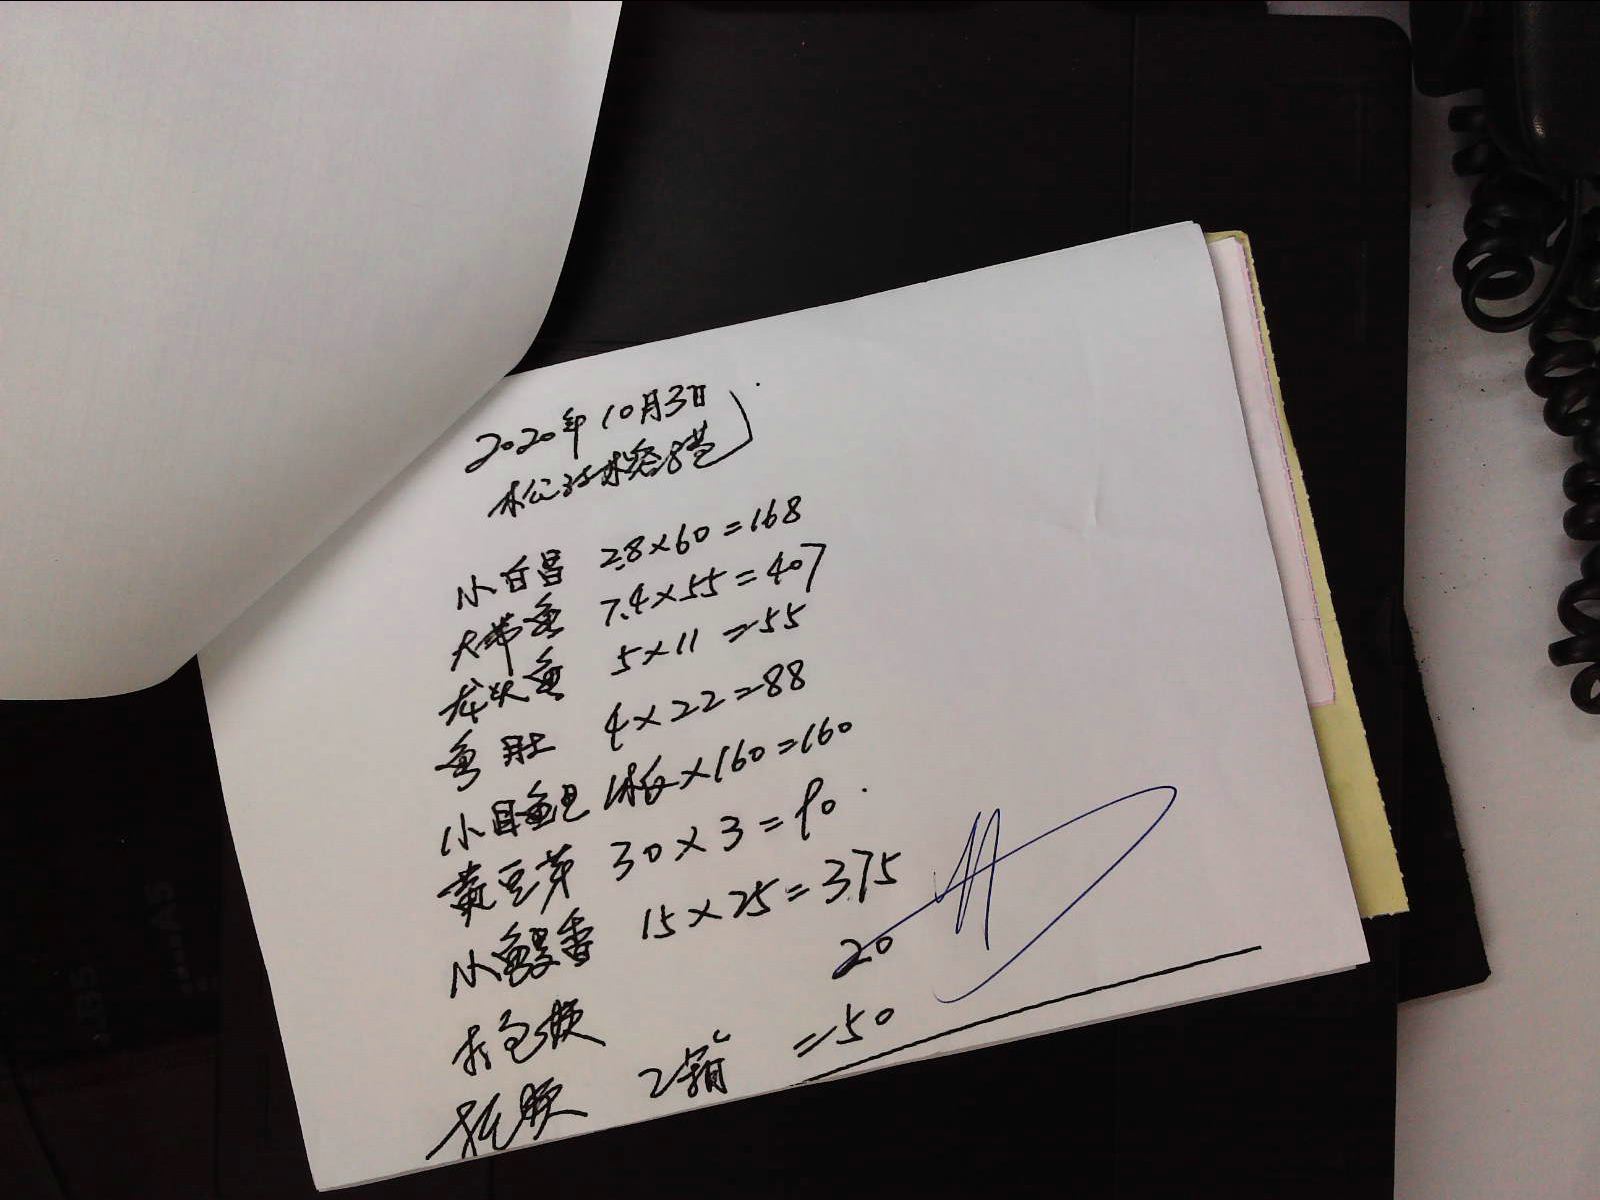 2020年10月3日
小白昌 2.8×60=168
大带鱼 7.4×55=407
龙头鱼 5×11=55
鱼肚 4×22=88
小目鱼 ×160=160
黄豆芽 30×3=90
小 香 15×25=375
打包 20
2箱 =50